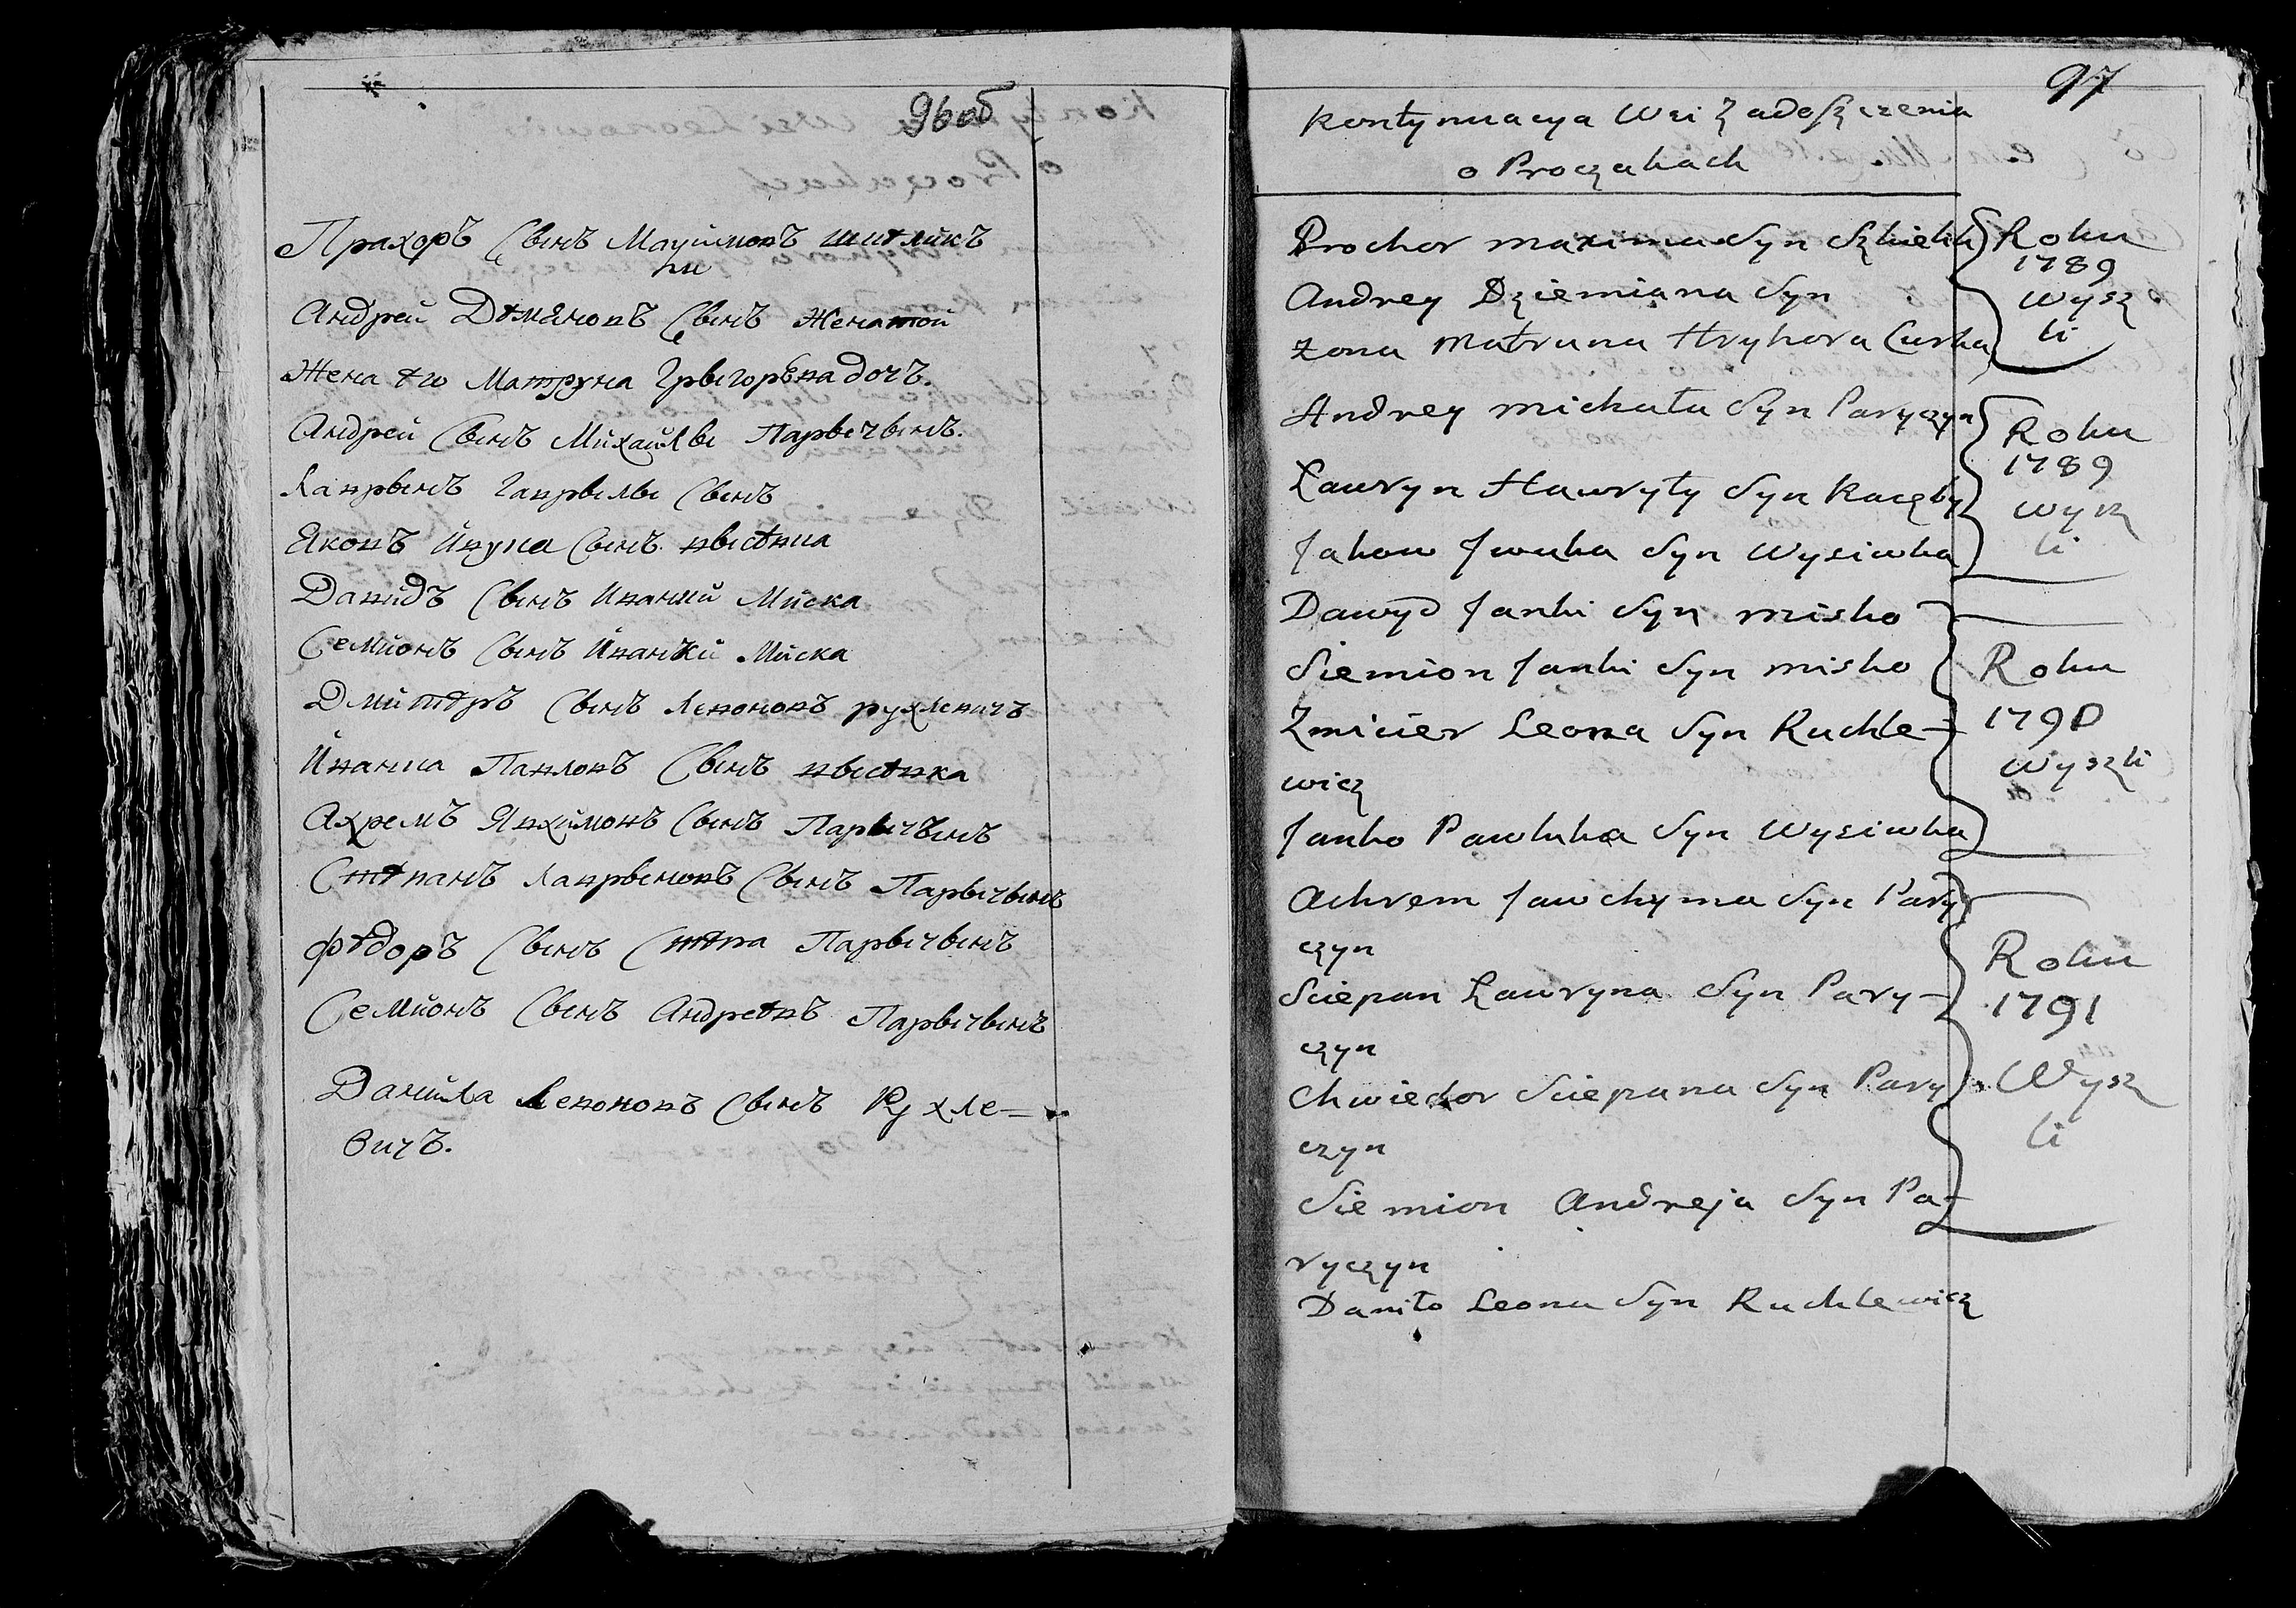 96 об
Прахоръ Сынъ Мауимовъ шитликъ
Андрей Демяновъ Сынъ Женатой
Жена его Матруна Грыгорева дочъ.
Андрей Сынъ Михайлы Парычынъ.
Лаврынъ Гаврылы Сынъ
Яковъ Ивука Сынъ. высевка
Давидъ Сынъ Иванки Миска
Семионъ Сынъ Иванки Миска
Дмитеръ Сынъ Левоновъ рухлевичъ
Иванка Павловъ Сынъ высевка
Ахремъ Явхимовъ Сынъ Парычынъ
Степанъ лаврыновъ Сынъ Парычынъ
Федоръ Сынъ Степа Парычынъ
Семионъ Сынъ Андреевъ Парычынъ
Данила Левоновъ Сынъ Рухле=
вичъ.
97
Kontynuacya Wsi Zadoszczenia
o Proczakach
Prochor Maxima Syn
Andrey Dziemiana Syn
Zona Matruna Hryhora Curka
Roku
1789
wysz
li
Andrey Michała Syn Paryczyn
Ławryn Hawryły Syn Raczby
Jakow Jwuka Syn Wysiwka
Roku
1789
wysz
li
Dawyd Janki Syn Misko
Siemion Janki Syn Misko
Zmicier Leona Syn Ruchle-
wicz
Janko Pawluka Syn Wysiwka
Roku
1790
wyszli
Achrem Jawchyma Syn Pary
czyn
Sciepan Ławryna Syn Pary-
czyn
Chwiedor Sciepana Syn Pary
czyn
Siemion Andreja Syn Pa-
ryczyn
Daniło Leona Syn Ruchlewicz
Roku
1791
Wysz
li